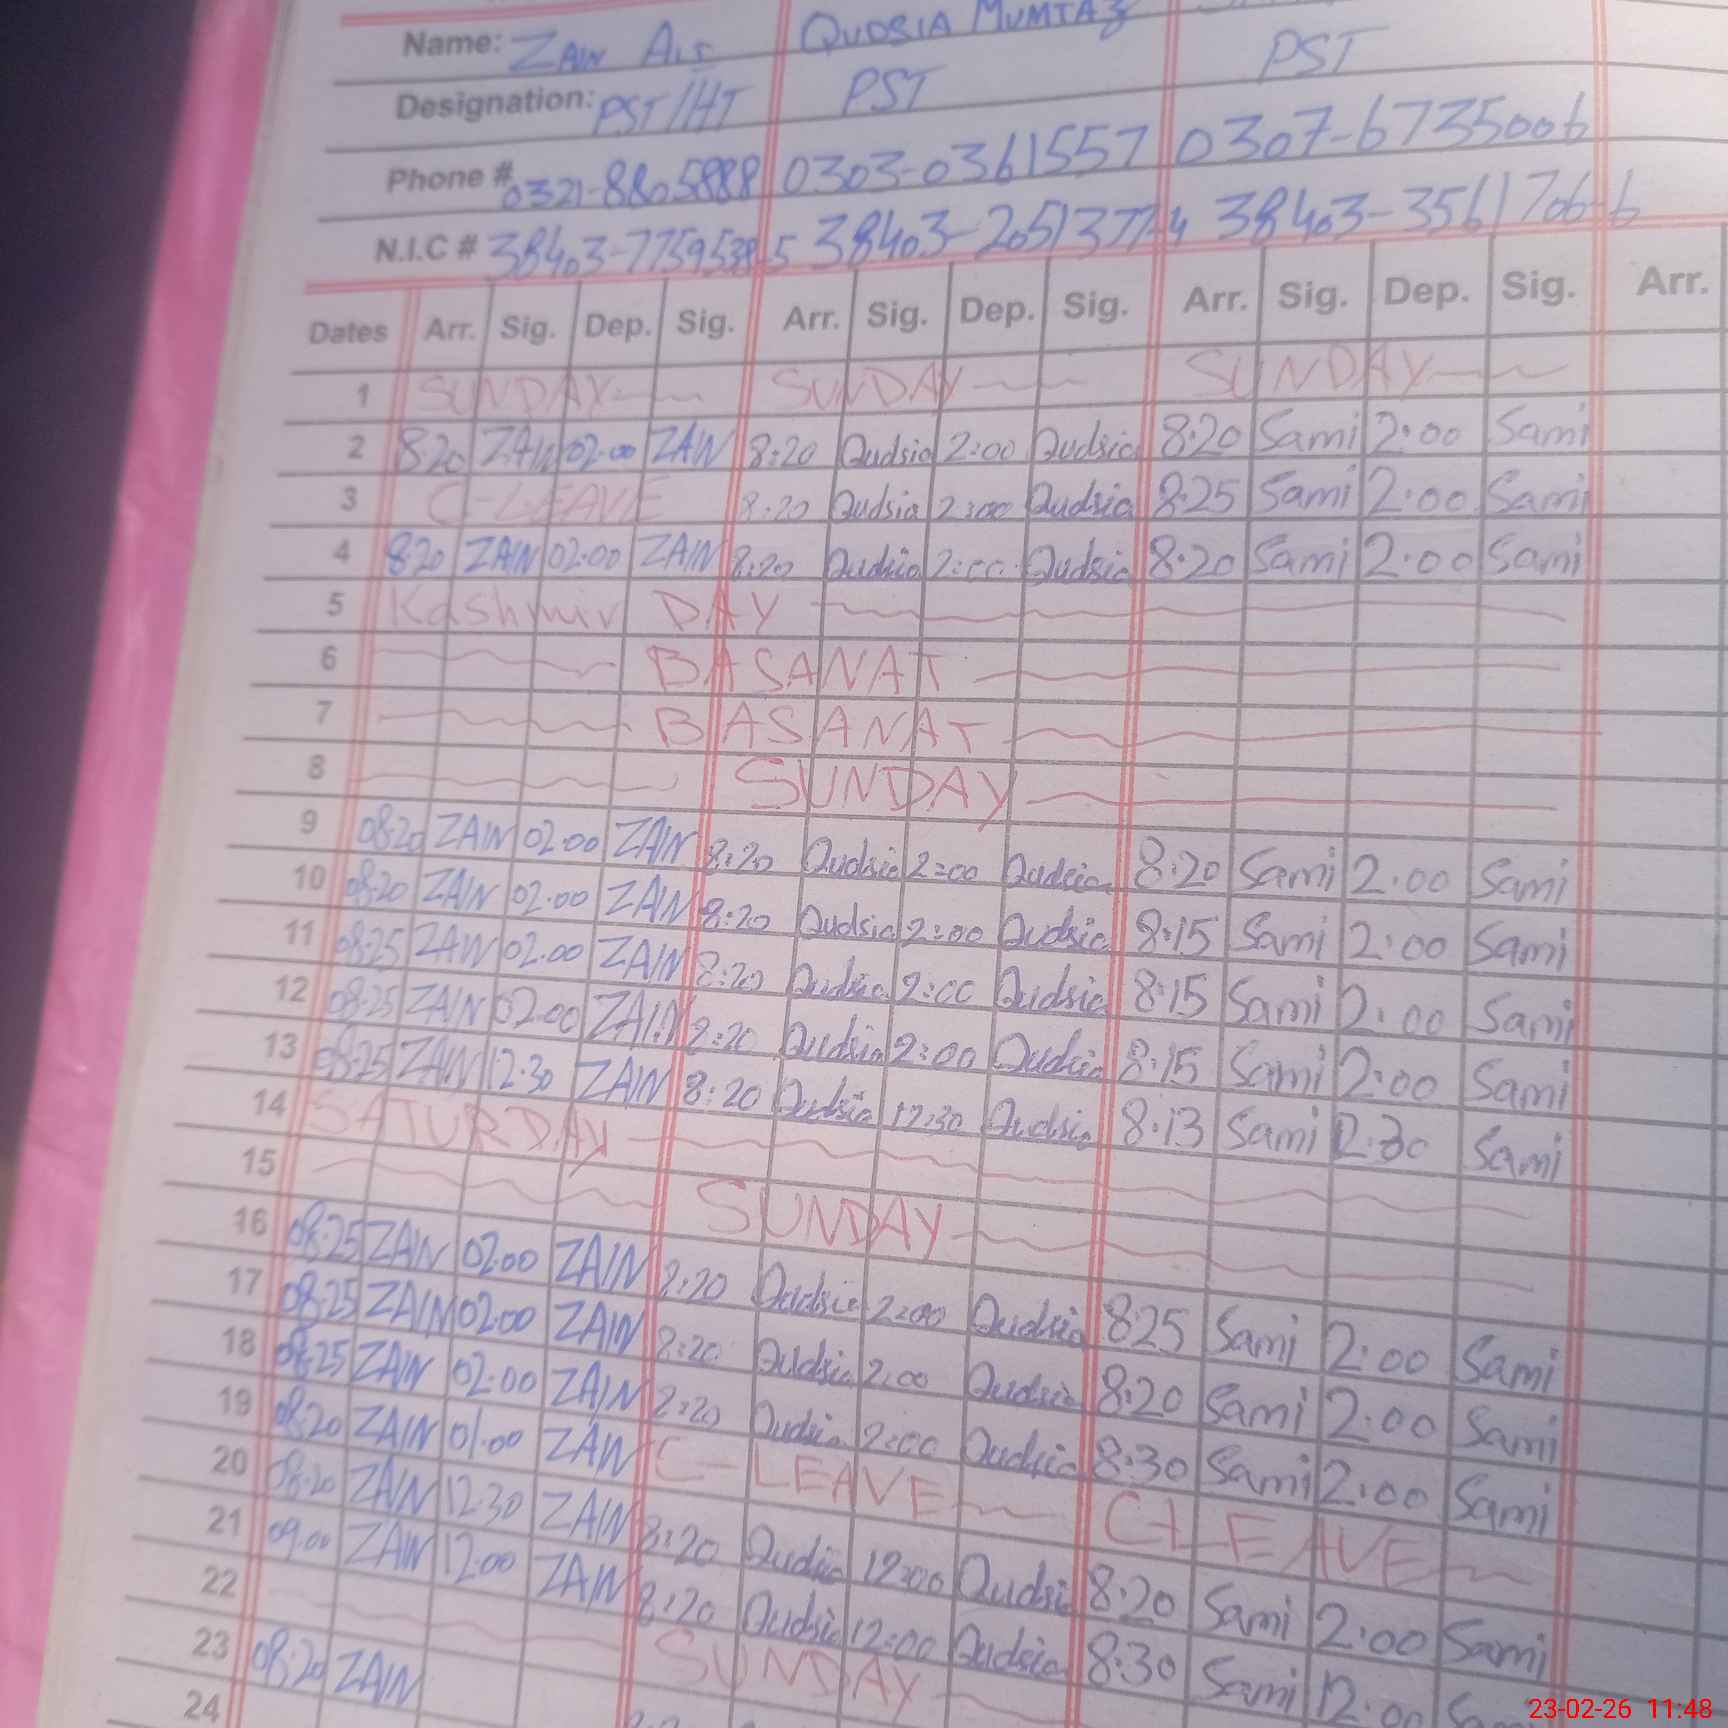 Name: ZAIN ALI QUDSIA MUMTAZ
Designation: PST/HT PST PST
Phone # 0321-8805888 0303-0361557 0307-6735006
N.I.C # 38403-2051377-4 38403-3561706-6
Dates Arr. Sig. Dep. Sig. Arr. Sig. Dep. Sig. Arr. Sig. Dep. Sig. Arr.
1 SUNDAY SUNDAY SUNDAY
2 8:20 ZAIN 02:00 ZAIN 8:20 Qudsia 2:00 Qudsia 8:20 Sami 2:00 Sami
3 C-LEAVE 8:20 Qudsia 2:00 Qudsia 8:25 Sami 2:00 Sami
4 8:20 ZAIN 02:00 ZAIN 8:20 Qudsia 2:00 Qudsia 8:20 Sami 2:00 Sami
5 Kashmir DAY
6 BASANAT
7 BASANAT
8 SUNDAY
9 08:20 ZAIN 02:00 ZAIN 8:20 Qudsia 2:00 Qudsia 8:20 Sami 2:00 Sami
10 08:20 ZAIN 02:00 ZAIN 8:20 Qudsia 2:00 Qudsia 8:15 Sami 2:00 Sami
11 08:25 ZAIN 02:00 ZAIN 8:20 Qudsia 2:00 Qudsia 8:15 Sami 2:00 Sami
12 08:25 ZAIN 02:00 ZAIN 8:20 Qudsia 2:00 Qudsia 8:15 Sami 2:00 Sami
13 08:25 ZAIN 12:30 ZAIN 8:20 Qudsia 12:30 Qudsia 8:13 Sami 12:30 Sami
14 SATURDAY
15 SUNDAY
16 08:25 ZAIN 02:00 ZAIN 8:20 Qudsia 2:00 Qudsia 8:25 Sami 2:00 Sami
17 08:25 ZAIN 02:00 ZAIN 8:20 Qudsia 2:00 Qudsia 8:20 Sami 2:00 Sami
18 08:25 ZAIN 02:00 ZAIN 8:20 Qudsia 2:00 Qudsia 8:30 Sami 2:00 Sami
19 08:20 ZAIN 01:00 ZAIN C-LEAVE C-LEAVE
20 08:20 ZAIN 12:30 ZAIN 8:20 Qudsia 12:00 Qudsia 8:20 Sami 2:00 Sami
21 09:00 ZAIN 12:00 ZAIN 8:20 Qudsia 12:00 Qudsia 8:30 Sami 12:00
22 SUNDAY
23 08:20 ZAIN
24
23-02-26 11:48